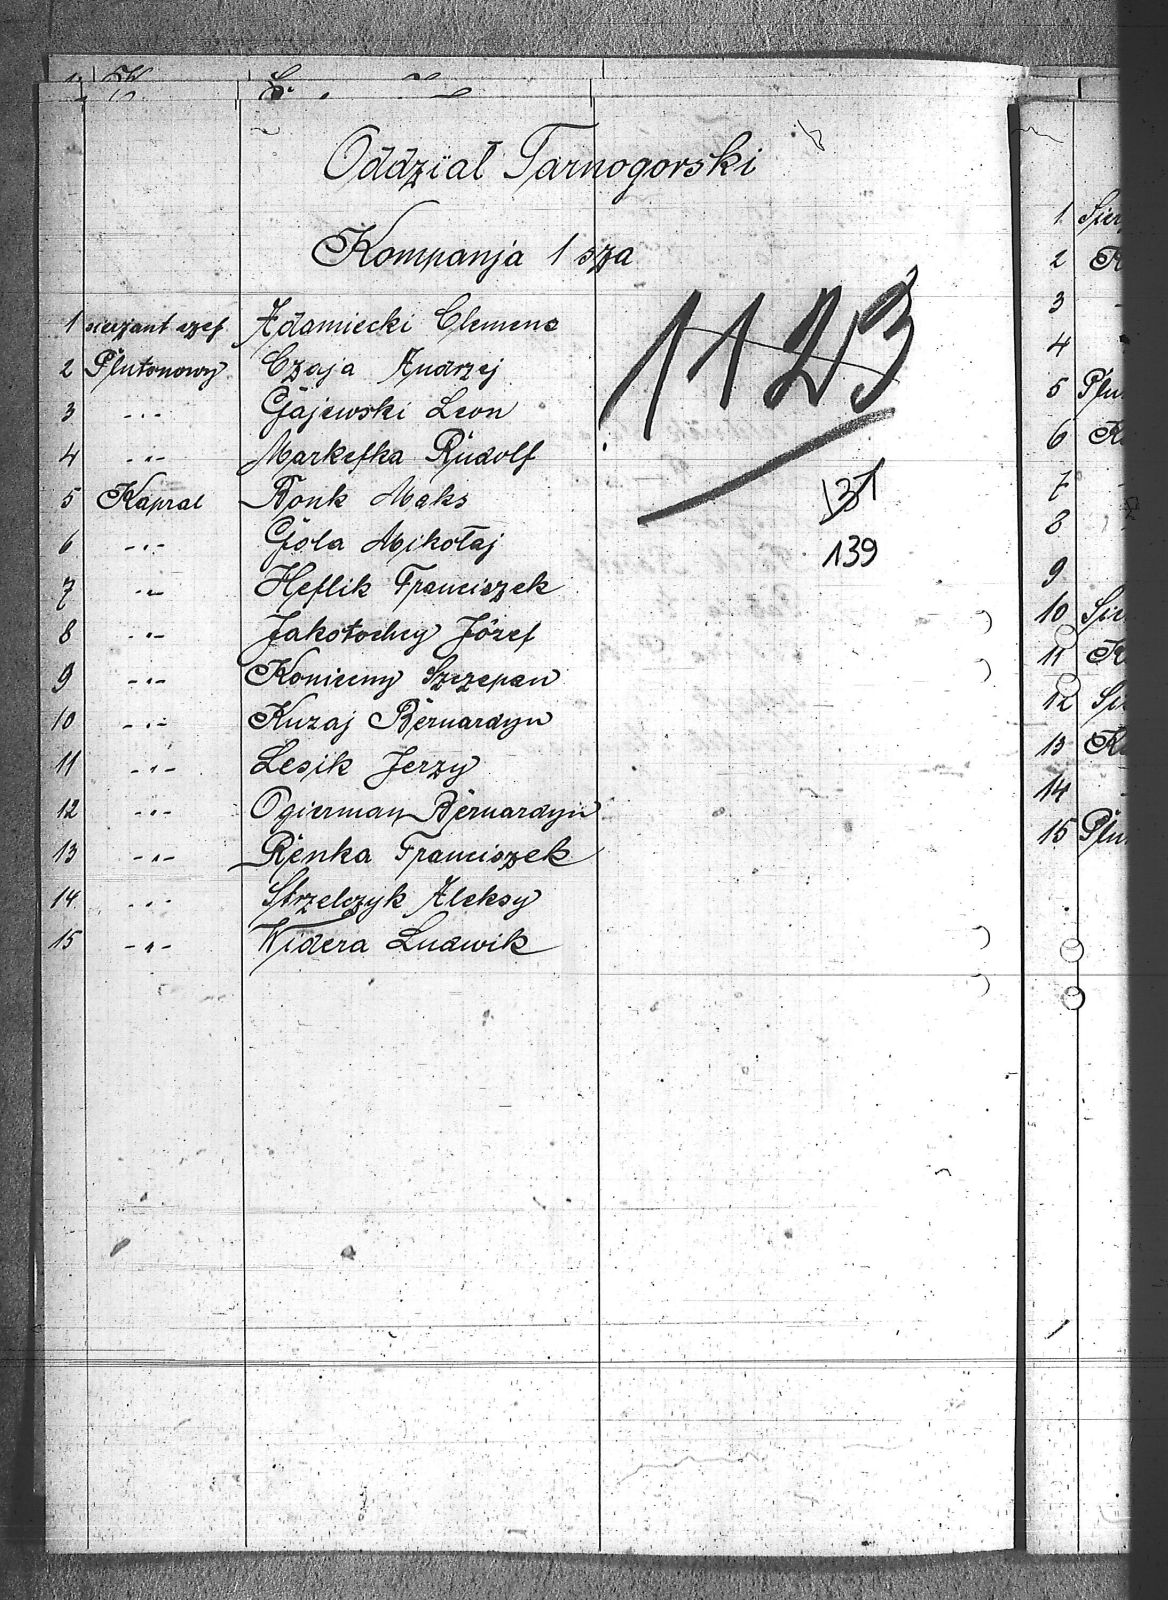 Oddział Tarnogorski
Kompanja 1 sza
1123
1 sierżant szef Adamiecki Clemens
2 Plutonowy Czaja Andrzej
3 -"- Gajewski Leon
4 -"- Markefka Rudolf
137
5 Kapral Bonk Maks
6 -"- Gola Mikołaj
139
7 -"- Heflik Franciszek
8 -"- Jakotochy Józef
9 -"- Konieczny Szczepan
10 -"- Kuzaj Bernardyn
11 -"- Lesik Jerzy
12 -"- Ogierman Bernardyn
13 -"- Renka Franciszek
14 -"- Strzelczyk Aleksy
15 -"- Widera Ludwik
1
2
3
4
5
6
7
8
9
10
11
12
13
14
15